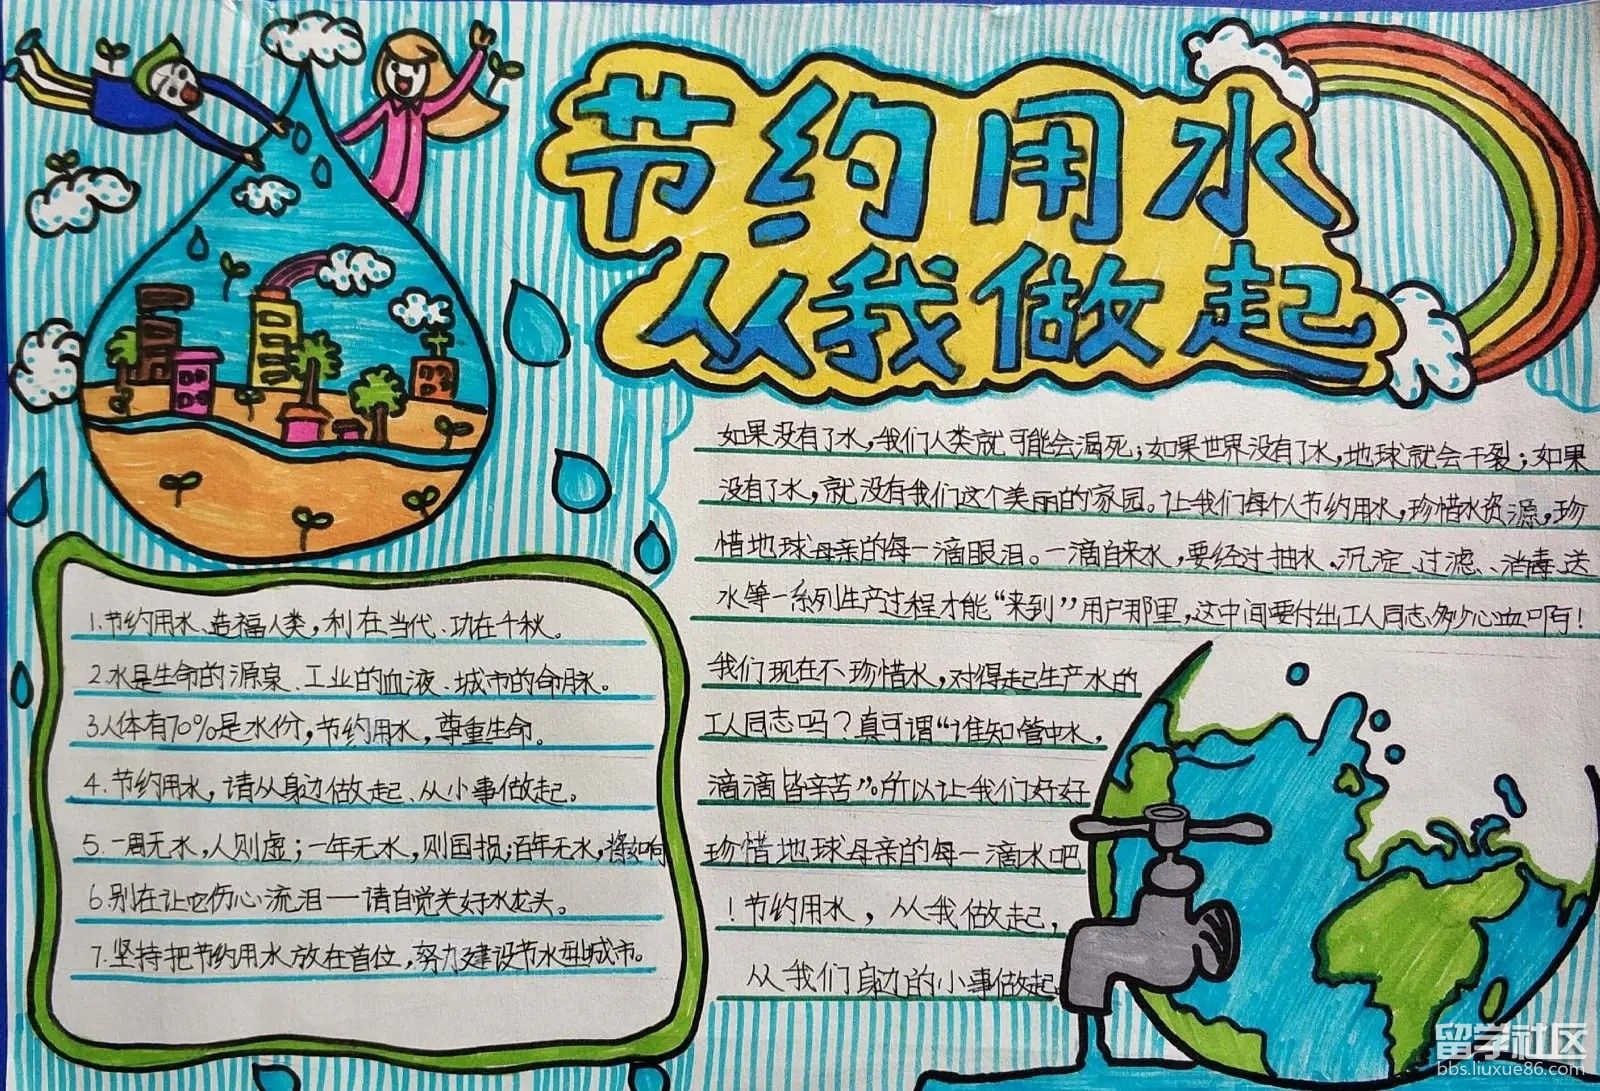 节约用水
从我做起
如果没有了水，我们人类就可能会渴死；如果世界没有了水，地球就会干裂；如果
没有了水，就没有我们这个美丽的家园。让我们每个人节约用水，珍惜水资源，珍
惜地球母亲的每一滴眼泪。一滴自来水，要经过抽水、沉淀、过滤、消毒、送
水等一系列生产过程才能“来到”用户那里，这中间要付出工人同志多少心血啊！
我们现在不珍惜水，对得起生产水的
工人同志吗？真可谓“谁知管中水，
滴滴皆辛苦”。所以让我们好好
珍惜地球母亲的每一滴水吧
！节约用水，从我做起，
从我们身边的小事做起。
1.节约用水、造福人类，利在当代、功在千秋。
2.水是生命的源泉、工业的血液、城市的命脉。
3.人体有70%是水份，节约用水，尊重生命。
4.节约用水，请从身边做起、从小事做起。
5.一周无水，人则虚；一年无水，则国损；百年无水，将如何
6.别在让它伤心流泪——请自觉关好水龙头。
7.坚持把节约用水放在首位，努力建设节水型城市。
留学社区
bbs.liuxue86.com